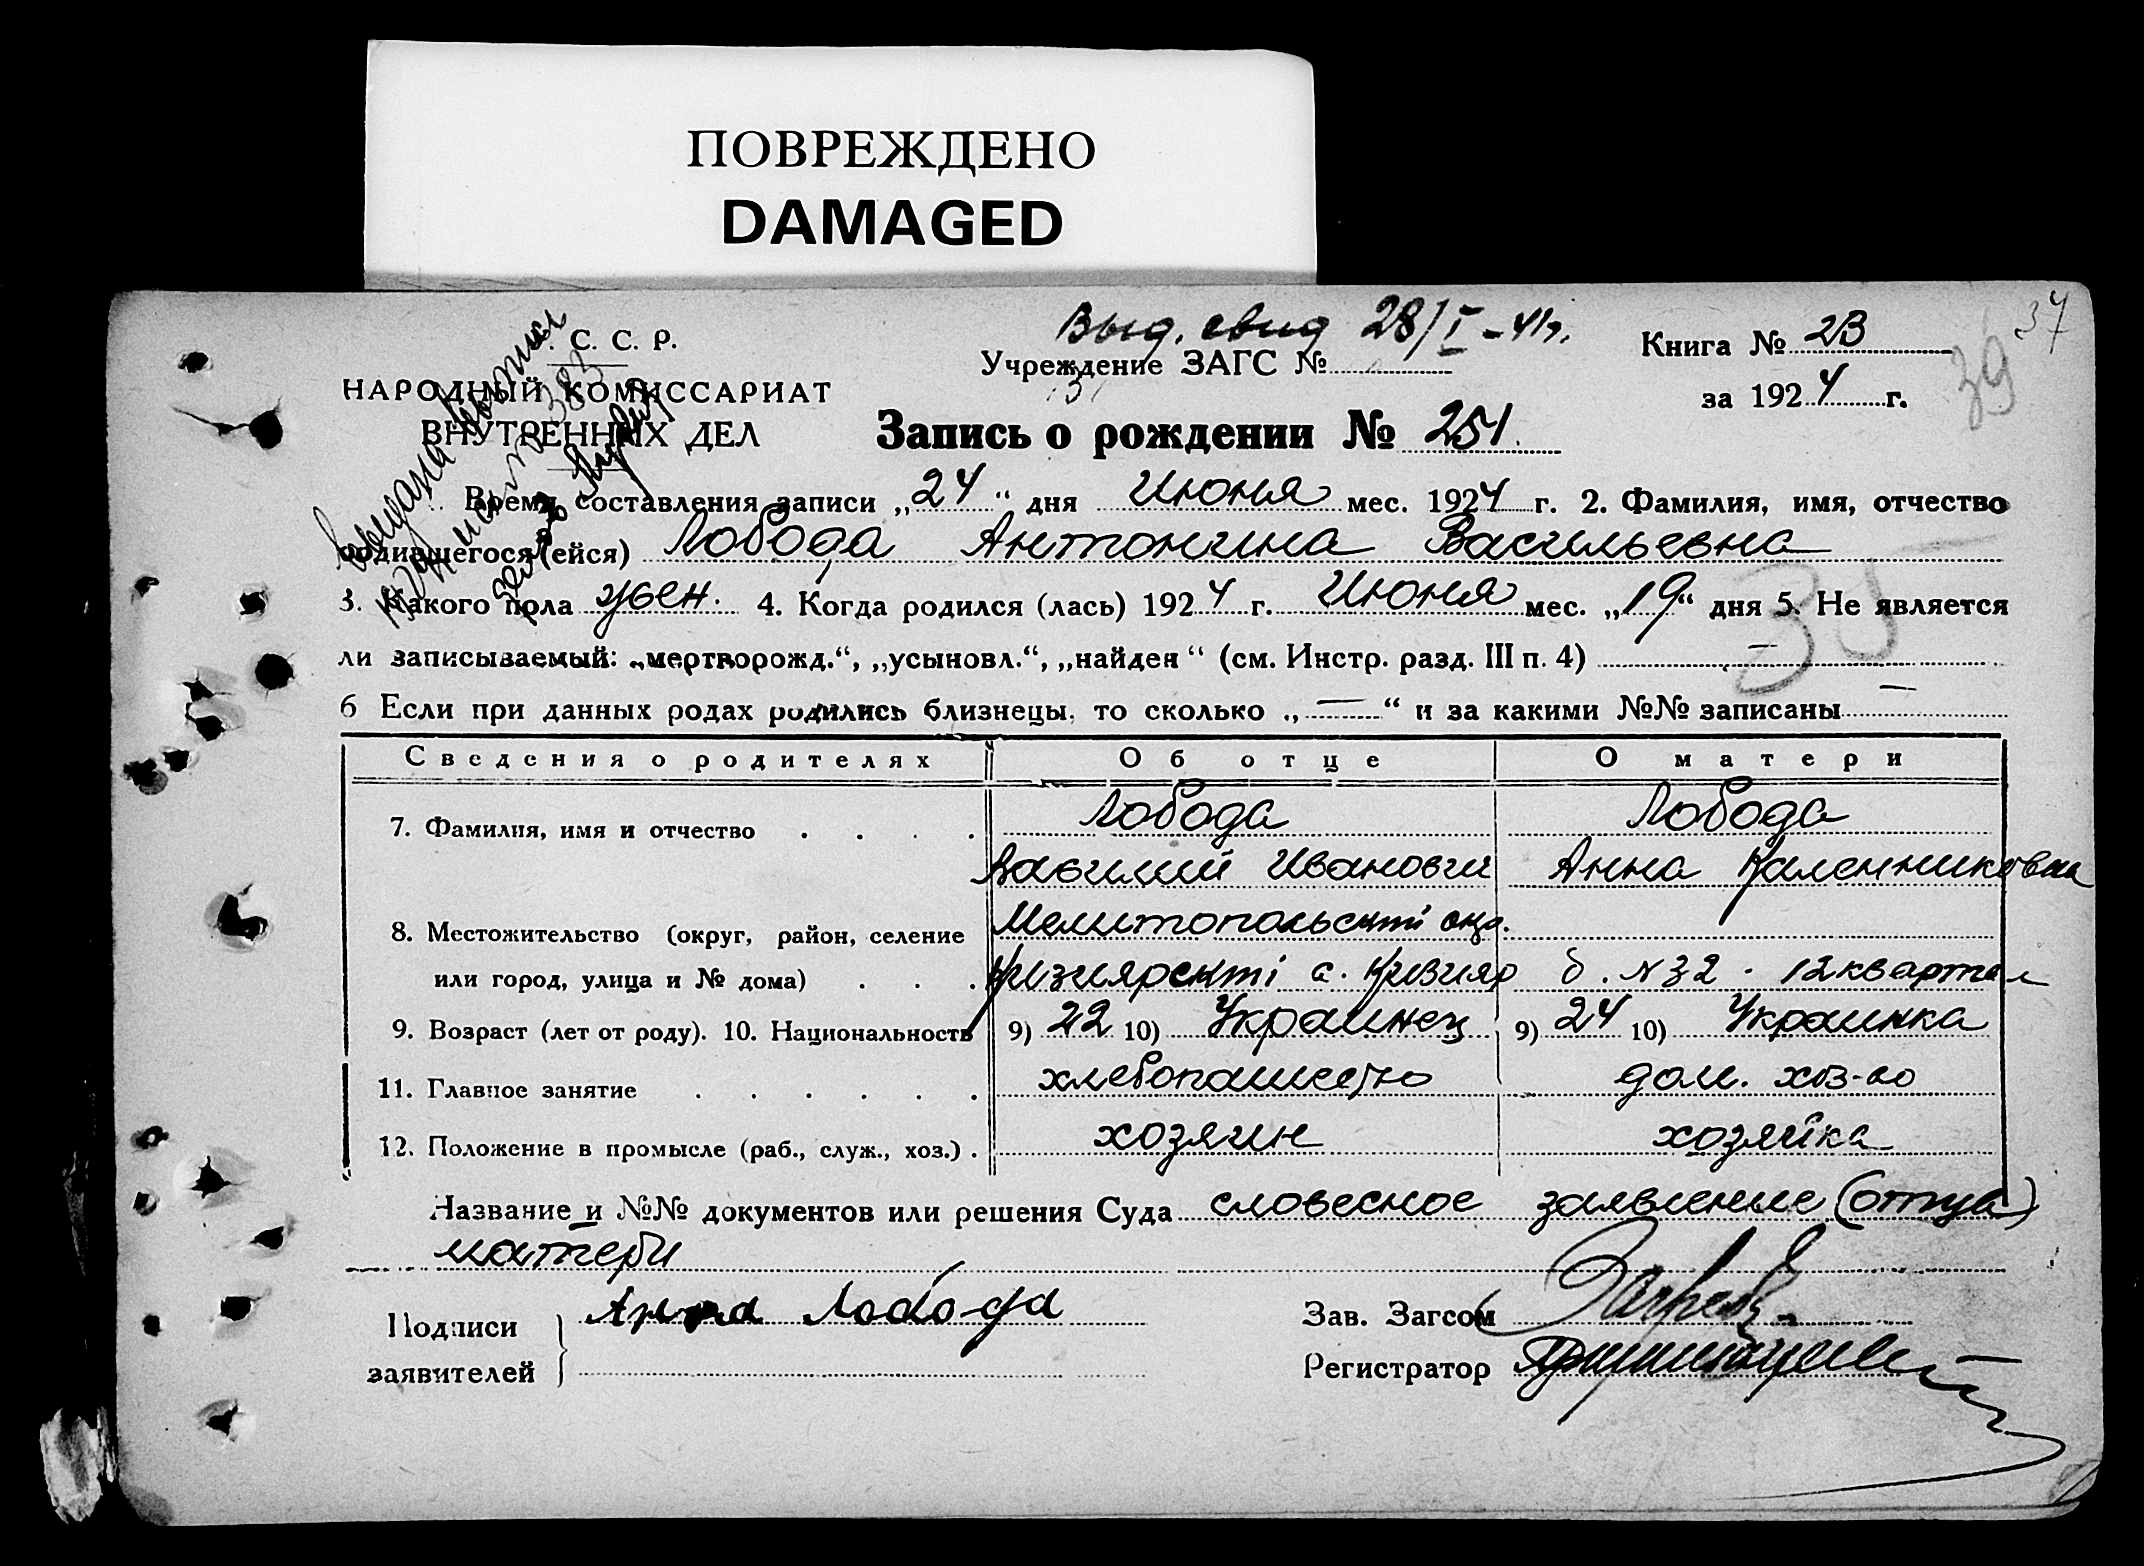 ПОВРЕЖДЕНО
DAMAGED
С. С. Р.
НАРОДНЫЙ КОМИССАРИАТ
ВНУТРЕННИХ ДЕЛ
Выдана выпись
Выд. свид 28/I-41г.
Учреждение ЗАГС №
Книга № 2В
за 1924 г.
37
39
Запись о рождении № 251.
Время составления записи „24“ дня Июня мес. 1924 г. 2. Фамилия, имя, отчество
родившегося (ейся) Лобода Антонина Васильевна
3. Какого пола жен. 4. Когда родился (лась) 1924 г. Июня мес. „19“ дня 5. Не является
35
ли записываемый: „мертворожд.“, „усыновл.“, „найден“ (см. Инстр. разд. III п. 4) —
6 Если при данных родах родились близнецы, то сколько „—“ и за какими №№ записаны —
Сведения о родителях Об отце О матери
7. Фамилия, имя и отчество . . . . Лобода Лобода
Василий Иванович Анна Каленниковна
8. Местожительство (округ, район, селение Мелитопольский
или город, улица и № дома) . . . Кизиярский с. Кизияр д. № 32. 12 квартал
9. Возраст (лет от роду). 10. Национальность 9) 22 10) Украинец 9) 24 10) Украинка
11. Главное занятие . . . . . . хлебопашество дом. хоз-во
12. Положение в промысле (раб., служ., хоз.) . хозяин хозяйка
Название и №№ документов или решения Суда словесное заявление (отца)
матери
Подписи
заявителей
Анна Лобода
Зав. Загсом
Регистратор